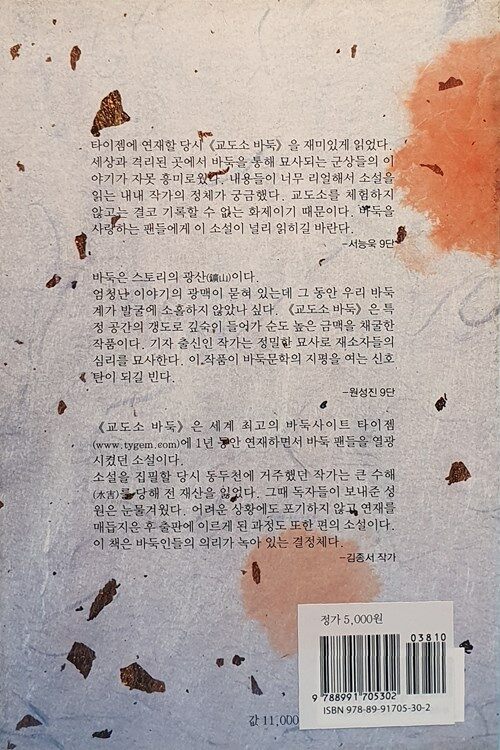 타이젬에 연재할 당시 《교도소 바둑》을 재미있게 읽었다.
세상과 격리된 곳에서 바둑을 통해 묘사되는 군상들의 이
야기가 자못 흥미로웠다. 내용들이 너무 리얼해서 소설을
읽는 내내 작가의 정체가 궁금했다. 교도소를 체험하지
않고는 결코 기록할 수 없는 화제이기 때문이다. 바둑을
사랑하는 팬들에게 이 소설이 널리 읽히길 바란다.
-서능욱 9단
바둑은 스토리의 광산(鑛山)이다.
엄청난 이야기의 광맥이 묻혀 있는데 그 동안 우리 바둑
계가 발굴에 소홀하지 않았나 싶다. 《교도소 바둑》은 특
정 공간의 갱도로 깊숙이 들어가 순도 높은 금맥을 채굴한
작품이다. 기자 출신인 작가는 정밀한 묘사로 재소자들의
심리를 묘사한다. 이 작품이 바둑문학의 지평을 여는 신호
탄이 되길 빈다.
-원성진 9단
《교도소 바둑》은 세계 최고의 바둑사이트 타이젬
(www.tygem.com)에 1년 동안 연재하면서 바둑 팬들을 열광
시켰던 소설이다.
소설을 집필할 당시 동두천에 거주했던 작가는 큰 수해
(水害)를 당해 전 재산을 잃었다. 그때 독자들이 보내준 성
원은 눈물겨웠다. 어려운 상황에도 포기하지 않고 연재를
매듭지은 후 출판에 이르게 된 과정도 또한 편의 소설이다.
이 책은 바둑인들의 의리가 녹아 있는 결정체다.
-김종서 작가
정가 5,000원
03810
9 788991 705302
ISBN 978-89-91705-30-2
값 11,000